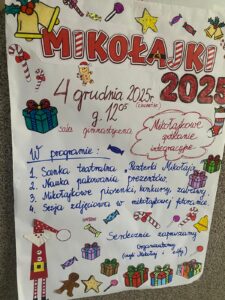 MIKOŁAJKI
2025
4 grudnia 2025r. (czwartek)
g. 12⁰⁵
sala gimnastyczna
Mikołajkowe
spotkanie
integracyjne
W programie:
1. Scenka teatralna Rozterki Mikołaja
2. Nauka pakowania prezentów
3. Mikołajkowe piosenki, konkursy, zabawy
4. Sesja zdjęciowa w mikołajkowej fotościance
Serdecznie zapraszamy
Organizatorzy
(czyli Mikołaj i elfy)